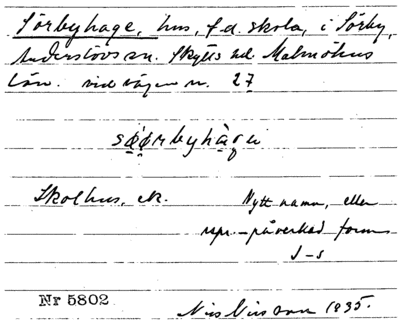 Sörbyhage, hus, f.d. skola, i Sörby,
Anderslövs sn. Skytts hd Malmöhus
län. vid vägen nr. 27
Skolhus, ek.
Nytt namn, eller
rspr.-påverkad form
J-s
Nr 5802
Nils Nilsson 1835.